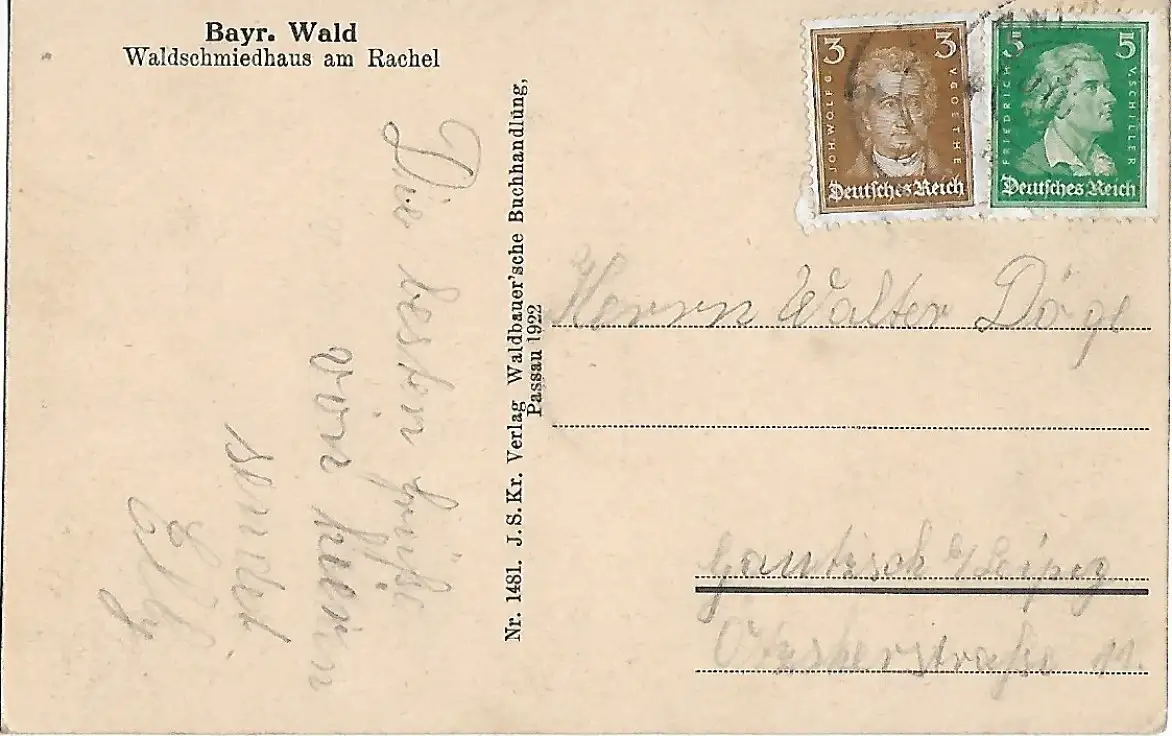 Bayr. Wald
Waldschmiedhaus am Rachel
Die besten Grüße
von hier
sendet
Elly
Nr. 1481. J. S. Kr. Verlag Waldbauer'sche Buchhandlung,
Passau 1922
3 3
JOH.WOLFG. V.GOETHE
Deutsches Reich
5 5
FRIEDRICH V.SCHILLER
Deutsches Reich
Herrn Walter Döge
Gautzsch b/Leipzig
Ötzscherstraße 11.